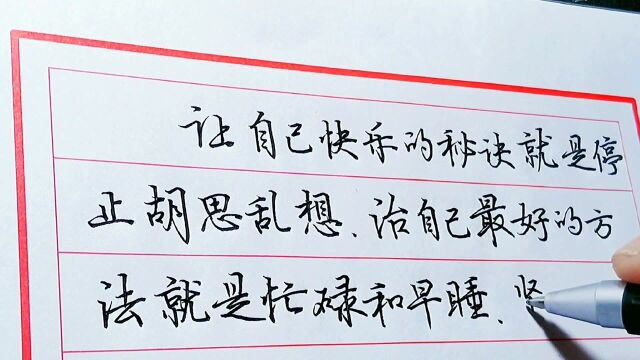 让自己快乐的秘诀就是停
止胡思乱想、治自己最好的方
法就是忙碌和早睡、坚